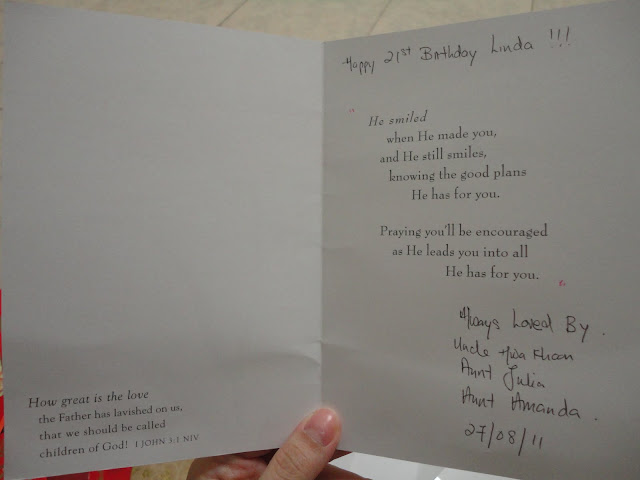 How great is the love
the Father has lavished on us,
that we should be called
children of God! I JOHN 3:1 NIV
Happy 21st Birthday Linda !!!
He smiled
when He made you,
and He still smiles,
knowing the good plans
He has for you.
Praying you'll be encouraged
as He leads you into all
He has for you.
Always Loved By.
Uncle Hwa Khoon
Aunt Julia
Aunt Amanda.
27/08/11